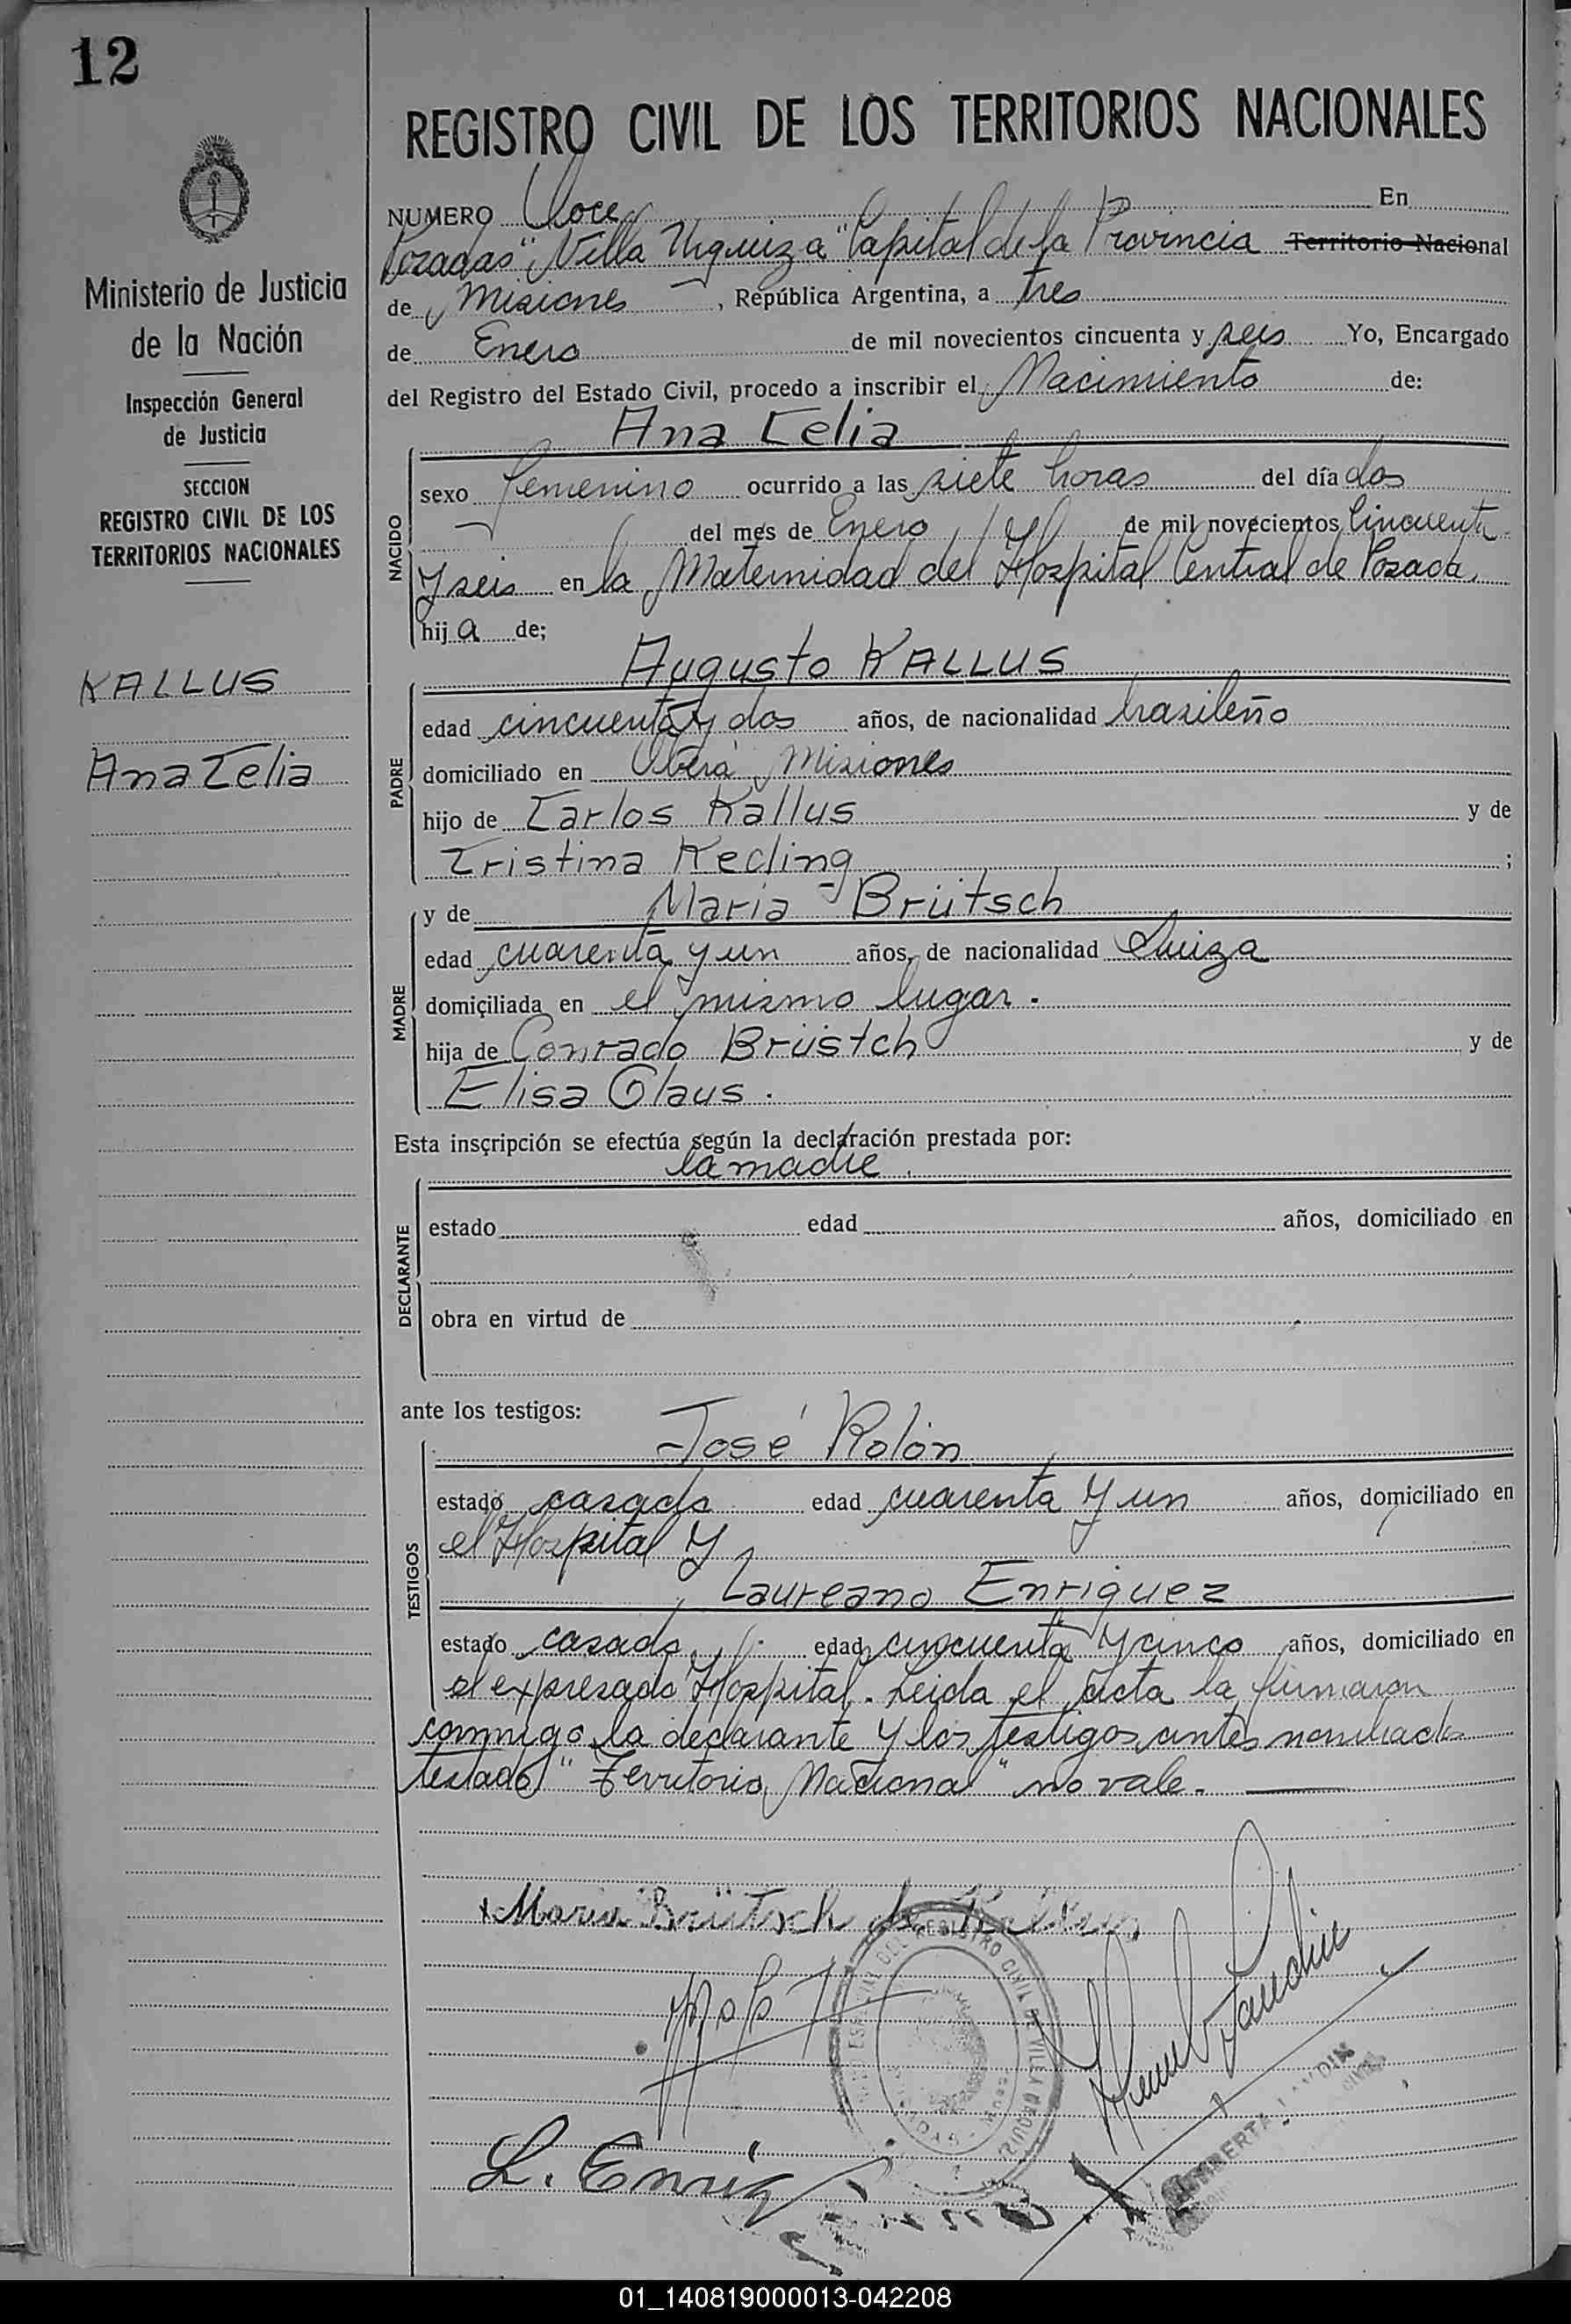 12
REGISTRO CIVIL DE LOS TERRITORIOS NACIONALES
Ministerio de Justicia
de la Nación
Inspección General
de Justicia
SECCION
REGISTRO CIVIL DE LOS
TERRITORIOS NACIONALES
KALLUS
Ana Celia
NUMERO Doce En
Posadas "Villa Urquiza" Capital de la Provincia Territorio Nacional
de Misiones, República Argentina, a tres
de Enero de mil novecientos cincuenta y seis Yo, Encargado
del Registro del Estado Civil, procedo a inscribir el Nacimiento de:
Ana Celia
NACIDO
sexo femenino ocurrido a las siete horas del día dos
del mes de Enero de mil novecientos Cincuenta
y seis en la Maternidad del Hospital Central de Posadas
hija de;
Augusto KALLUS
PADRE
edad cincuenta y dos años, de nacionalidad brasileño
domiciliado en Oberá Misiones
hijo de Carlos Kallus y de
Cristina Kecling;
MADRE
y de María Brütsch
edad cuarenta y un años, de nacionalidad Suiza
domiciliada en el mismo lugar.
hija de Conrado Brüstch y de
Elisa Glaus.
Esta inscripción se efectúa según la declaración prestada por:
la madre.
DECLARANTE
estado edad años, domiciliado en
obra en virtud de
ante los testigos:
José Rolón
TESTIGOS
estado casado edad cuarenta y un años, domiciliado en
el Hospital y
Laureano Enriquez
estado casado edad cincuenta y cinco años, domiciliado en
el expresado Hospital. Leida el acta la firmaron
conmigo la declarante y los testigos antes nombrados
testado "Territorio Nacional" no vale.
Maria Brütsch de Kallus
REGISTRO CIVIL DE VILLA URQUIZA
L. Enriq
01_140819000013-042208